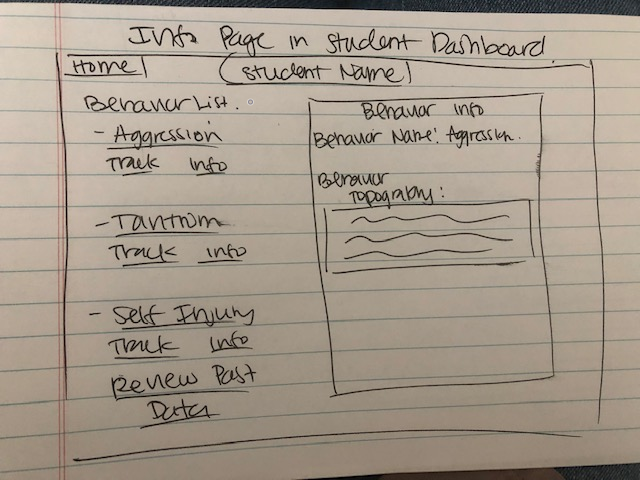 Info Page in Student Dashboard.
Home
Student Name
Behavior List.
- Aggression
Track info
- Tantrum
Track info
- Self Injury
Track info
Review Past
Data
Behavior info
Behavior Name: Aggression.
Behavior
Topography: